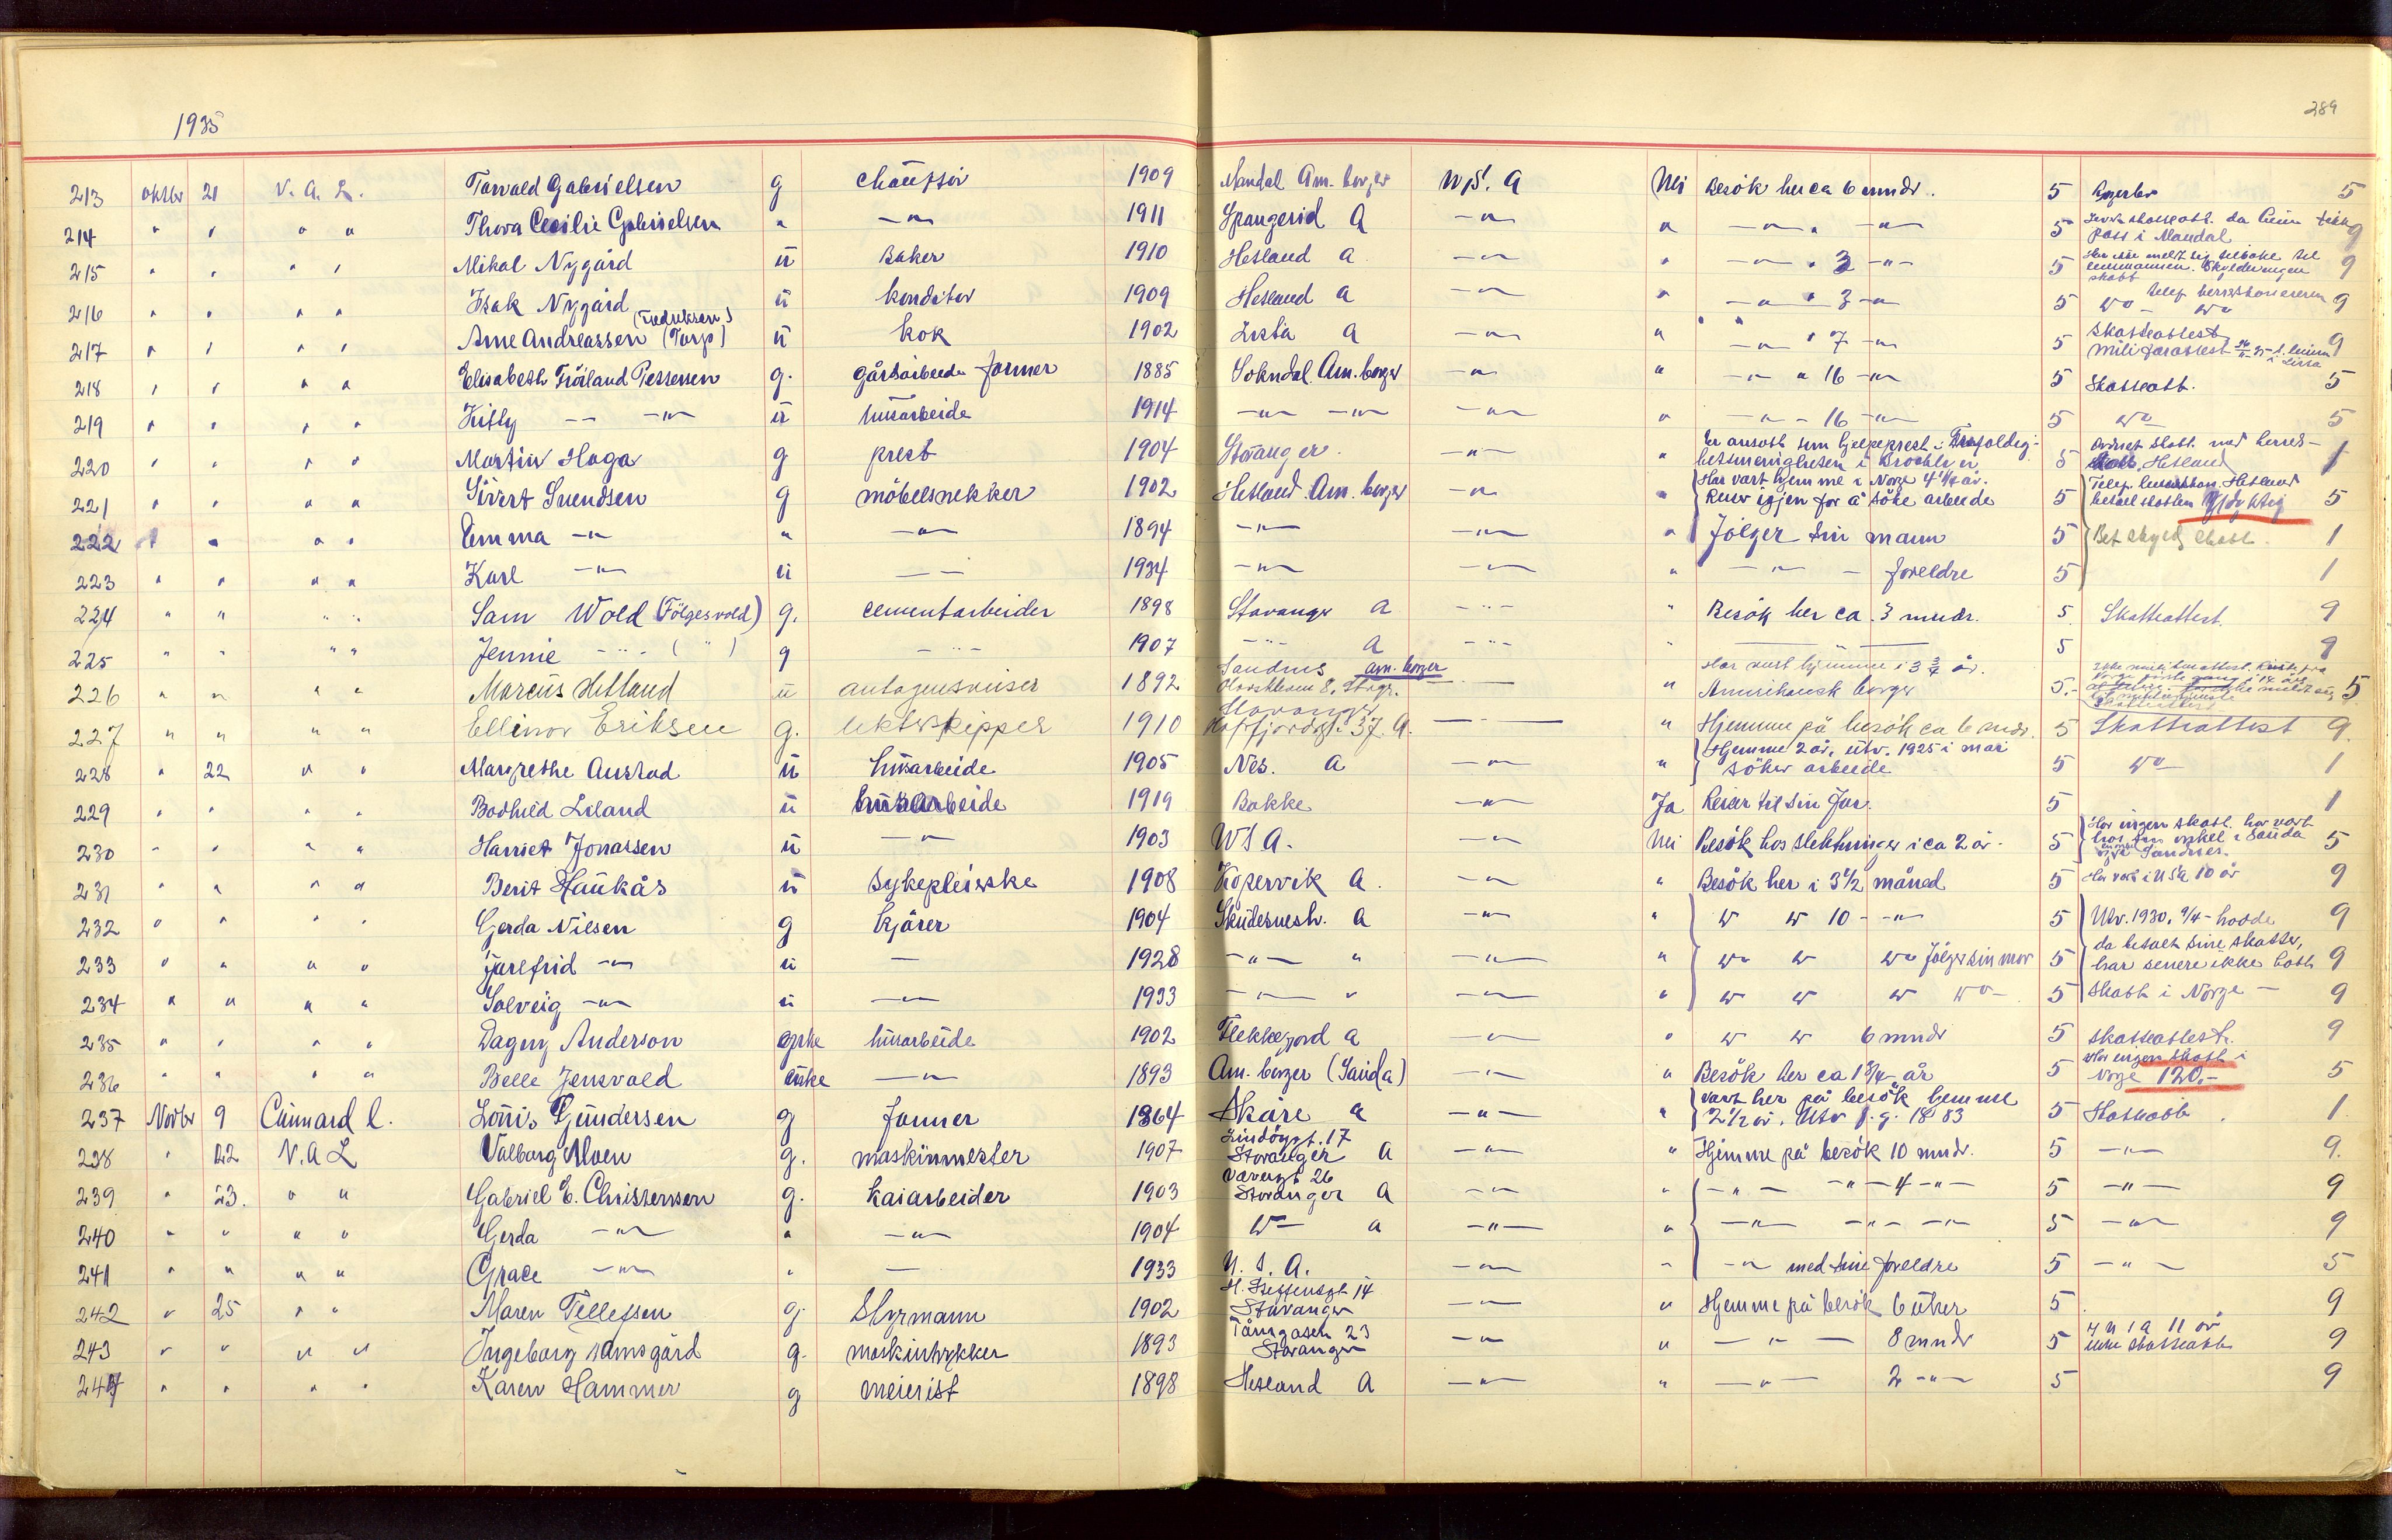 1935
389
213 oktbr 21 N. A. L. Torvald Gabrielsen g chauffør 1909 Mandal Am. borger U.S. A Nei Besök her ca 6 mndr. 5 5
214 " " " " Thora Cecilie Gabrielsen " -"- 1911 Spangerid A -"- " -"- " -"- 5 9
pass i Mandal
215 " " " " Mikal Nygård ü Baker 1910 Hetland a -"- " -"- " 3 -"- 5 Har ikke meldt sig tilbake til 9
lensmannen. Skylder ingen
skatt
216 " " " " Isak Nygård ü konditor 1909 Hetland a -"- " -"- " 3 -"- 5 9
(Fredriksen)
217 " " " " Arne Andreassen (Torp) ü kok 1902 Lista a -"- " -"- " 7 -"- 5 Skatteattest 9
218 " " " " Elisabeth Fröiland Pettersen g. gårdsarbeide farmer 1885 Sokndal Am. borger -"- " -"- " 16 -"- 5 Skatteatt. 5
219 " " " " Kitty -- -"- ü husarbeide 1914 -"- -"- -"- " -"- - 16 -"- 5 5
220 " " " " Martin Haga g prest 1904 Stavanger. -"- " Er ansatt som hjelpeprest i Trefoldig- 5 1
hetsmenigheten i Brooklyn. Hetland
221 " " " " Sivert Svendsen g möbelsnekker 1902 Hetland Am. borger -"- " Har vært hjemme i Norge 4 1/4 år. 5 Telef. Hetland 5
Reiser igjen for å söke arbeide
222 " " " " Emma -"- " -"- 1894 -"- -"- " Fölger sin mann 5 1
223 " " " " Karl -"- ü -- 1934 -"- -"- " -"- - foreldre 5 1
224 " " " " Sam Wold (Fölgesvold) g. cementarbeider 1898 Stavanger a -"- " Besök her ca. 3 mndr. 5 Skatteattest. 9
225 " " " " Jennie -"- ( " ) g -"- 1907 -"- a -"- " 5 9
226 " " " " Marcus Hetland ü autogensveiser 1892 Sandnes am. borger -"- " Har vært hjemme i 3 3/4 år. 5.- 5
Amerikansk borger
227 " " " " Ellinor Eriksen g. lekterskipper 1910 Stavanger -"- " Hjemme på besök ca 6 mndr. 5 Skatteattest 9.
Hafrfjordgt. 37. A.
228 " 22 " " Margrethe Austad ü husarbeide 1905 Nes. a -"- " Hjemme 2 år, utv. 1925 i mai 5 1
söker arbeide
229 " " " " Bodhild Liland ü husarbeide 1919 Bakke -"- Ja Reiser til sin far. 5 1
230 " " " " Harriet Jonassen ü -"- 1903 USA. -"- Nei Besök hos slektninger i ca 2 år. 5 Har ingen skatt. har vært 5
hos sin onkel i Sauda
Sandnes.
231 " " " " Berit Haukås ü sykepleierske 1908 Kopervik a. -"- " Besök her i 3 1/2 måned 5 Har vært i USA 10 år 9
232 " " " " Gerda Nilsen g kjörer 1904 Skudenesh. a -"- " 10 -"- 5 Utv. 1930. 9/4 - hadde 9
da betalt sine skatter,
233 " " " " Jarlfrid -"- ü — 1928 -"- " -"- " Fölger sin mor 5 har senere ikke hatt 9
234 " " " " Solveig -"- ü -"- 1933 -"- " -"- " 5 skatt i Norge - 9
235 " " " " Dagny Anderson gske husarbeide 1902 Flekkefjord a -"- " 6 mndr 5 skatteattest. 9
236 " " " " Belle Jensvold enke -"- 1893 Am. borger (Sauda) -"- " Besök her ca 1 3/4 år 5 Har ingen skatt i 5
Norge 120.-
237 Novbr 9 Cunnard l. Louis Gundersen g farmer 1864 Skåre a -"- " vært her på besök hjemme 5 1.
2 1/2 år. Utv f. g. 1883
238 " 22 N. A L Valborg Moen g. maskinmester 1907 Lindöygt. 17 -"- " Hjemme på besök 10 mndr. 5 -"- 9.
Stavanger a
239 " 23. " " Gabriel E. Christensen g. kaiarbeider 1903 Vavergt 26 -"- " -"- -"- 4 -"- 5 -"- 9
Stavanger a
240 " " " " Gerda -"- " -"- 1904 a -"- " -"- -"- -"- 5 -"- 9
241 " " " " Grace -"- " — 1933 U. S. A. -"- " -"- med sine foreldre 5 -"- 5
242 " 25 " " Maren Tellefsen g. Styrmann 1902 H. Steffensgt 14 -"- " Hjemme på besök 6 uker 5 9
Stavanger
243 " " " " Ingeborg Ramsgård g. maskintrykker 1893 Tårngaten 23 -"- " -"- 8 mndr 5 i USA 11 år 9
Stavanger
244 " " " " Karen Hammer g meierist 1898 Hetland a -"- " -"- 2 -"- 5 9